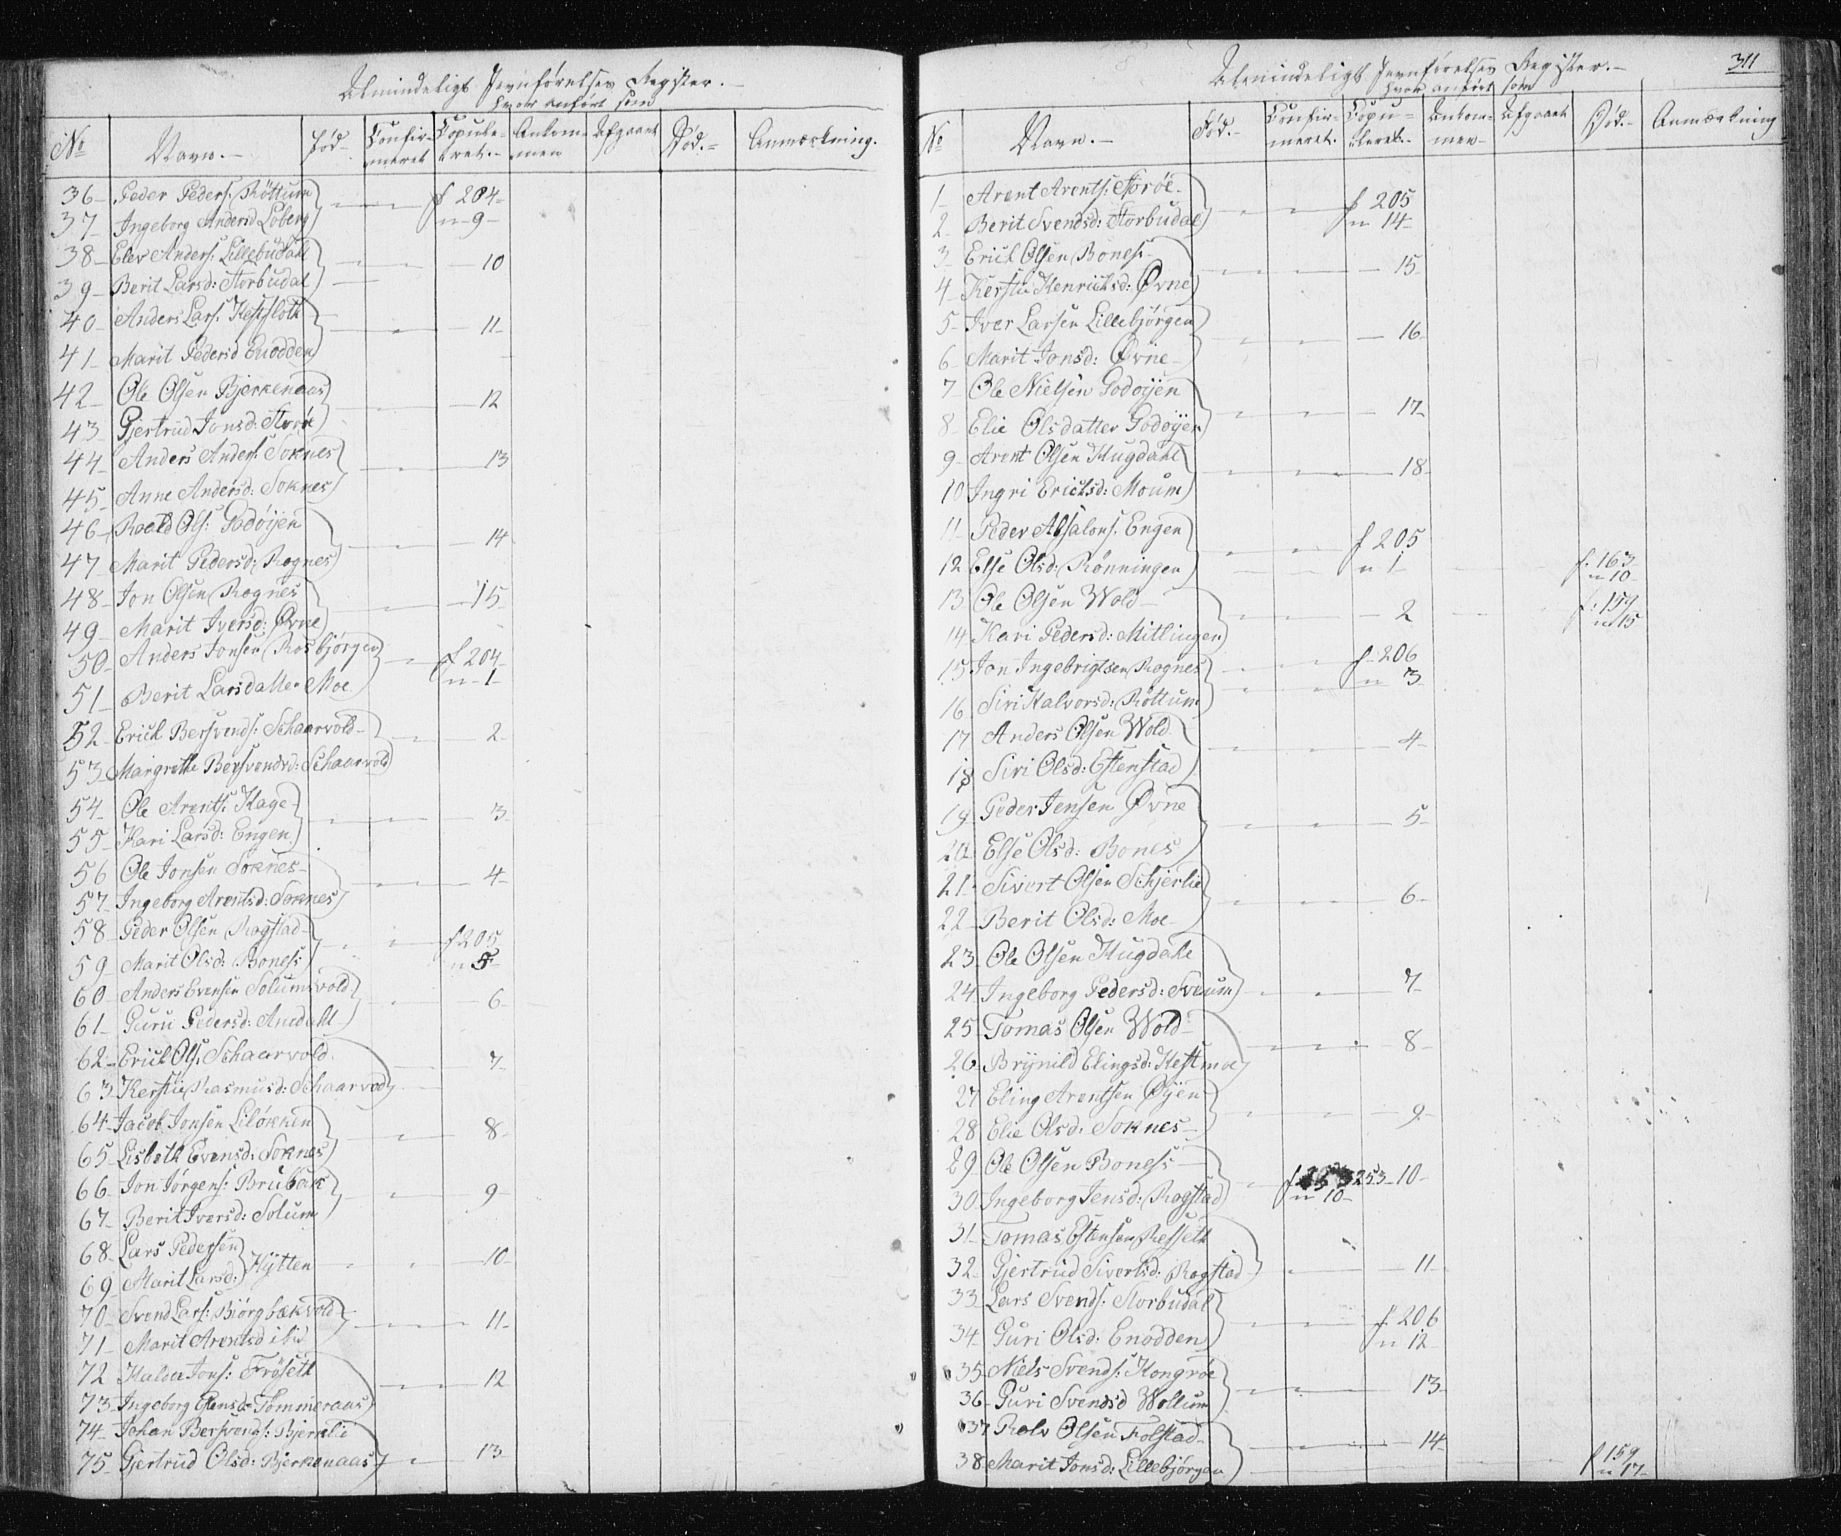 Almindeligt Jevnførelses Register.
hvor anført som
No Navn. Fød Confirmeret Copuleret. Ankommen Afgaaet Død. Anmærkning.
36 Peder Peders: Røttum f 204
37 Ingeborg Andersd Loberg n 9
38 Elev Anders: Lillebudahl 10
39 Berit Larsd: Storbudal
40 Anders Lars: Hestflott 11
41 Marit Pedersd Enodden
42 Ole Olsen Bjerkenaas 12
43 Gjertrud Jonsd: Storøe
44 Anders Anders: Soknes 13
45 Anne Andersd: Soknes
46 Roald Ols: Godøÿen 14
47 Marit Pedersd: Rognes
48 Jon Olsen Rognes 15
49 Marit Iversd: Øvne
50 Anders Jonsen Rosbjørgen f 204
51 Berit Larsdatter Moe n 1
52 Erick Bersvends: Schaarvold 2
53 Margrethe Bersvendsd: Schaarvold
54 Ole Arents: Hage 3
55 Kari Larsd: Engen
56 Ole Jonsen Soknes 4
57 Ingeborg Arentsd: Soknes
58 Peder Olsen Rogstad f 205
59 Marit Olsd: Boness n 5
60 Anders Evensen Solumsvold 6
61 Guru Pedersd: Amdahl
62 Erick Ols: Schaarvold 7
63 Kerstie Rasmusd: Schaarvod
64 Jacob Jonsen Liløkken 8
65 Lisbeth Evensd: Soknes
66 Jon Jørgens: Brubak 9
67 Berit Iversd: Solum
68 Lars Pedersen 10
69 Marit Larsd: Hÿtten
70 Svend Lars: Biörgbækvold 11
71 Marit Arentsd ibid
72 Haldor Jons: Frøseth 12
73 Ingeborg Elensd: Tommeraas
74 Johan Bersvends: Bjerklie
75 Gjertrud Olsd: Bjerkenaas 13
Almindeligt Jevnførelses Register. 311
hvor anført som
No Navn. Fød. Confirmeret. Copuleret. Ankommen Afgaaet Død. Anmærkning
1 Arent Arents: Storøe f 205
2 Berit Svendsd: Storbudal n 14
3 Erick Olsen Boness 15
4 Kerstie Henricksd: Øvne
5 Iver Larsen Lillebjørgen 16
6 Marit Jonsd: Øvne
7 Ole Nielsen Godøÿen 17
8 Elie Olsdatter Godøÿen
9 Arent Olsen Hugdahl 18
10 Ingri Ericksd: Moum
11 Peder Absalons: Engen f 205
12 Else Olsd: Rönningen n 1 f. 163 n 10
13 Ole Olsen Wold 2 f. 157 n 15
14 Kari Pedersd: Mitlingen
15 Jon Ingebrigtsen Rognes f 206
16 Siri Halvorsd: Røttum n 3
17 Anders Olsen Wold 4
18 Siri Olsd: Estenstad
19 Peder Jensen Øvne 5
20 Else Olsd: Bones
21 Sivert Olsen Schjerlie 6
22 Berit Olsd: Moe
23 Ole Olsen Hugdahl
24 Ingeborg Pedersd: Sveum 7
25 Tomas Olsen Wold 8
26 Brÿnild Elingsd: Hestmoe
27 Eling Arentsen Øÿen 9
28 Elie Olsd: Soknes
29 Ole Olsen Boness 253 10
30 Ingeborg Jensd: Rogstad n 10
31 Tomas Estensen Resseth
32 Gjertrud Sivertsd: Rogstad 11
33 Lars Svends: Storbudal f. 206
34 Guri Olsd: Enodden n 12
35 Niels Svends: Kongrøe 13
36 Guri Svendsd Wollum
37 Rolv Olsen Folstad 14
38 Marit Jonsd: Lillebjørgen f 159 n 17